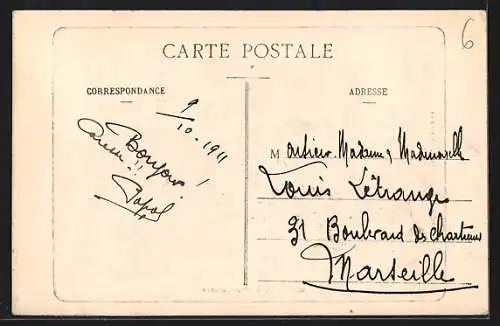 CARTE POSTALE
6
CORRESPONDANCE
ADRESSE
9/10-1911
Bonjour!
Popol
Monsieur, Madame, Mademoiselle
Louis Létrange
31 Boulevard des Chartreux
Marseille